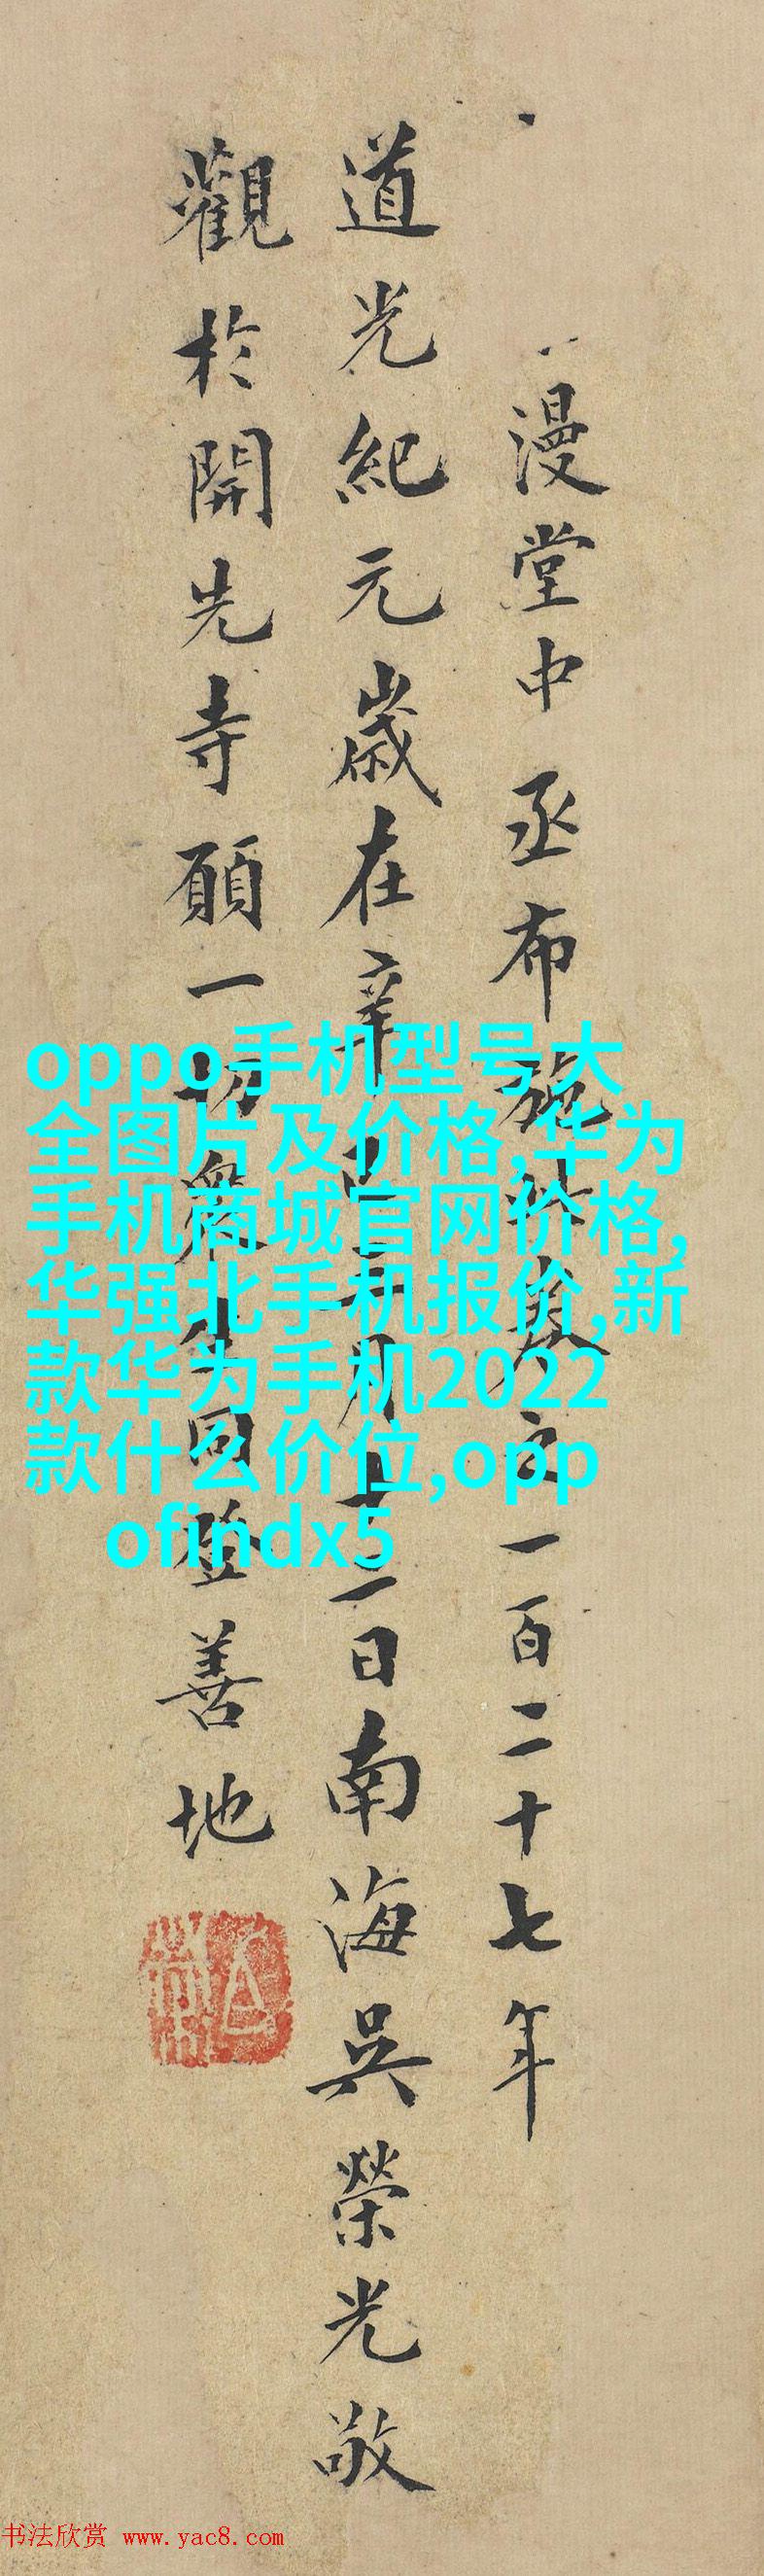 漫堂中丞布施之一百二十七年
道光紀元歲在辛巳月十日南海吳榮光敬
觀於開先寺願一切衆生同登善地
oppo手机型号大
全图片及价格,华为
手机商城官网价格,
华强北手机报价,新
款华为手机2022
款什么价位,opp
ofindx5
书法欣赏 www.yac8.com